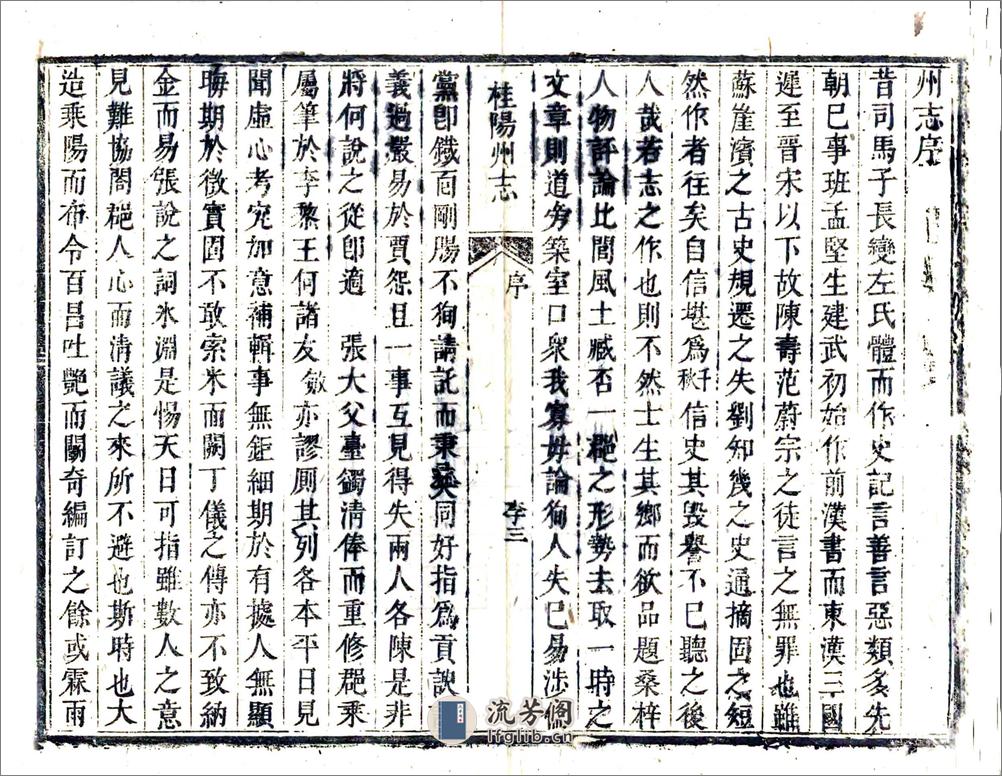 州志序
昔司馬子長變左氏體而作史記言善言惡類多先
朝已事班孟堅生建武初始作前漢書而東漢三國
遲至晉宋以下故陳壽范蔚宗之徒言之無罪也雖
蘇崖濱之古史規遷之失劉知幾之史通摘固之短
然作者往矣自信堪爲千秋信史其毀譽不已聽之後
人哉若志之作也則不然士生其鄉而欲品題桑梓
人物評論比閭風土臧否一郡之形勢去取一時之
文章則道旁築室口衆我寡毋論狥人失已易涉
桂陽州志
序
序三
黨卽鐵面剛腸不狥請託而秉同好指爲貢諛
義過嚴易於賈怨且一事互見得失兩人各陳是非
將何說之從卽適 張大父臺蠲清俸而重修郡乗
屬筆於李黎王何諸友 敓亦謬厠其列各本平日見
聞虛心考究加意補輯事無鉅細期於有據人無顯
晦期於徵實固不敢索米而闕丁儀之傳亦不致納
金而易張說之詞氷淵是惕天日可指雖數人之意
見難協閤郡人心而淸議之來所不避也斯時也大
造乘陽而布令百昌吐艷而鬬奇編訂之餘或霖雨
流芳阁
lfglib.cn